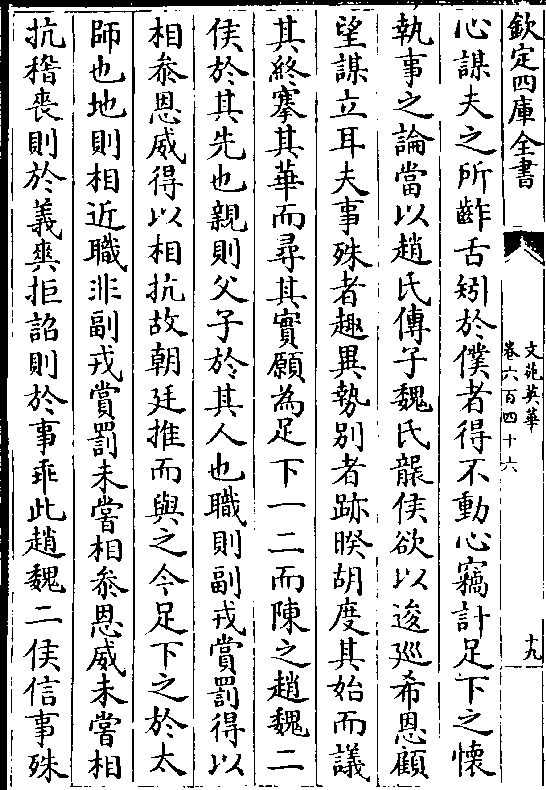 欽定四庫全書
文苑英華
卷六百四十六
十九
心謀夫之所齰舌矧於僕者得不動心竊計足下之懷
執事之論當以趙氏傳子魏氏襲侯欲以逡巡希恩顧
望謀立耳夫事殊者趣異勢别者跡睽胡度其始而議
其終搴其華而尋其實願為足下一二而陳之趙魏二
侯於其先也親則父子於其人也職則副戎賞罰得以
相參恩威得以相抗故朝廷推而與之今足下之於太
師也地則相近職非副戎賞罰未嘗相參恩威未嘗相
抗稽喪則於義爽拒詔則於事乖此趙魏二侯信事殊